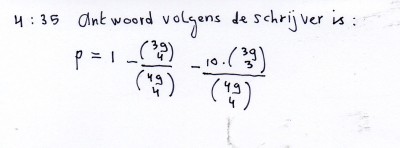 4:35 Antwoord volgens de schrijver is:
p = 1 - \frac{\binom{39}{4}}{\binom{49}{4}} - \frac{10 \cdot \binom{39}{3}}{\binom{49}{4}}